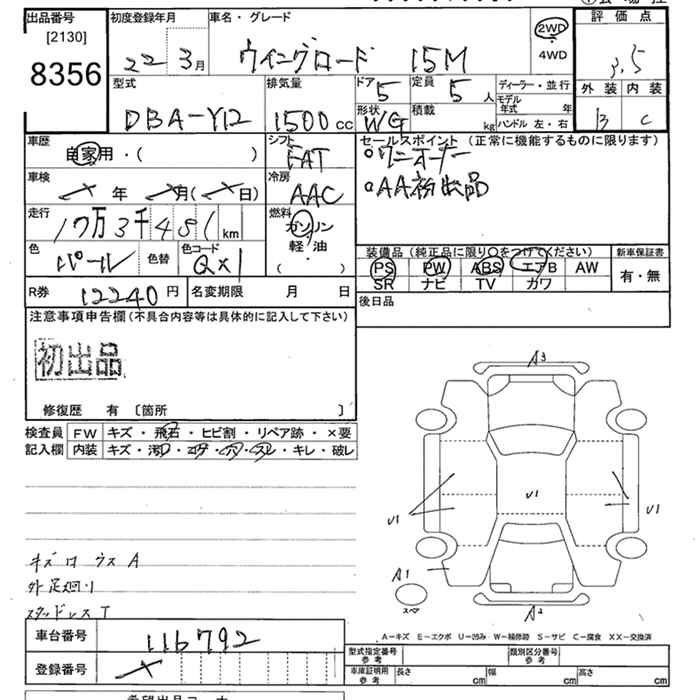 出品番号 [2130] 8356
初度登録年月 22 3月
車名・グレード ウイングロード 15M
2WD
4WD
評価点 3.5
外装 内装
B C
型式 DBA-Y12
排気量 1500cc
ドア 5
定員 5人
形状 WG
積載 kg
ディーラー・並行
モデル年式 年
ハンドル 左・右
車歴 自家用・( )
シフト FAT
セールスポイント (正常に機能するものに限ります)
ワンオーナー
AA初出品
車検 年 月 ( 日)
冷房 AAC
走行 17万3千481km
燃料 ガソリン
軽・油
( ・ )
色 パール
色替
色コード QX1
装備品(純正品に限り○をつけてください)
新車保証書
PS PW ABS エアB AW
有・無
SR ナビ TV カワ
R券 12240円
名変期限 月 日
後日品
注意事項申告欄(不具合内容等は具体的に記入して下さい)
初出品
修復歴 有 〔箇所 〕
検査員 FW キズ・飛石・ヒビ割・リペア跡・×要
記入欄 内装 キズ・汚レ・コゲ・穴・スレ・キレ・破レ
A3
U1
U1
U1
A1
スペア
A2
キズロ ウス A
外足廻り
スタッドレス T
A−キズ E−エクボ U−凹み W−補修跡 S−サビ C−腐食 XX−交換済
車台番号 116792
登録番号
型式指定番号 参考
類別区分番号 参考
車庫証明用 参考
長さ cm
幅 cm
高さ cm